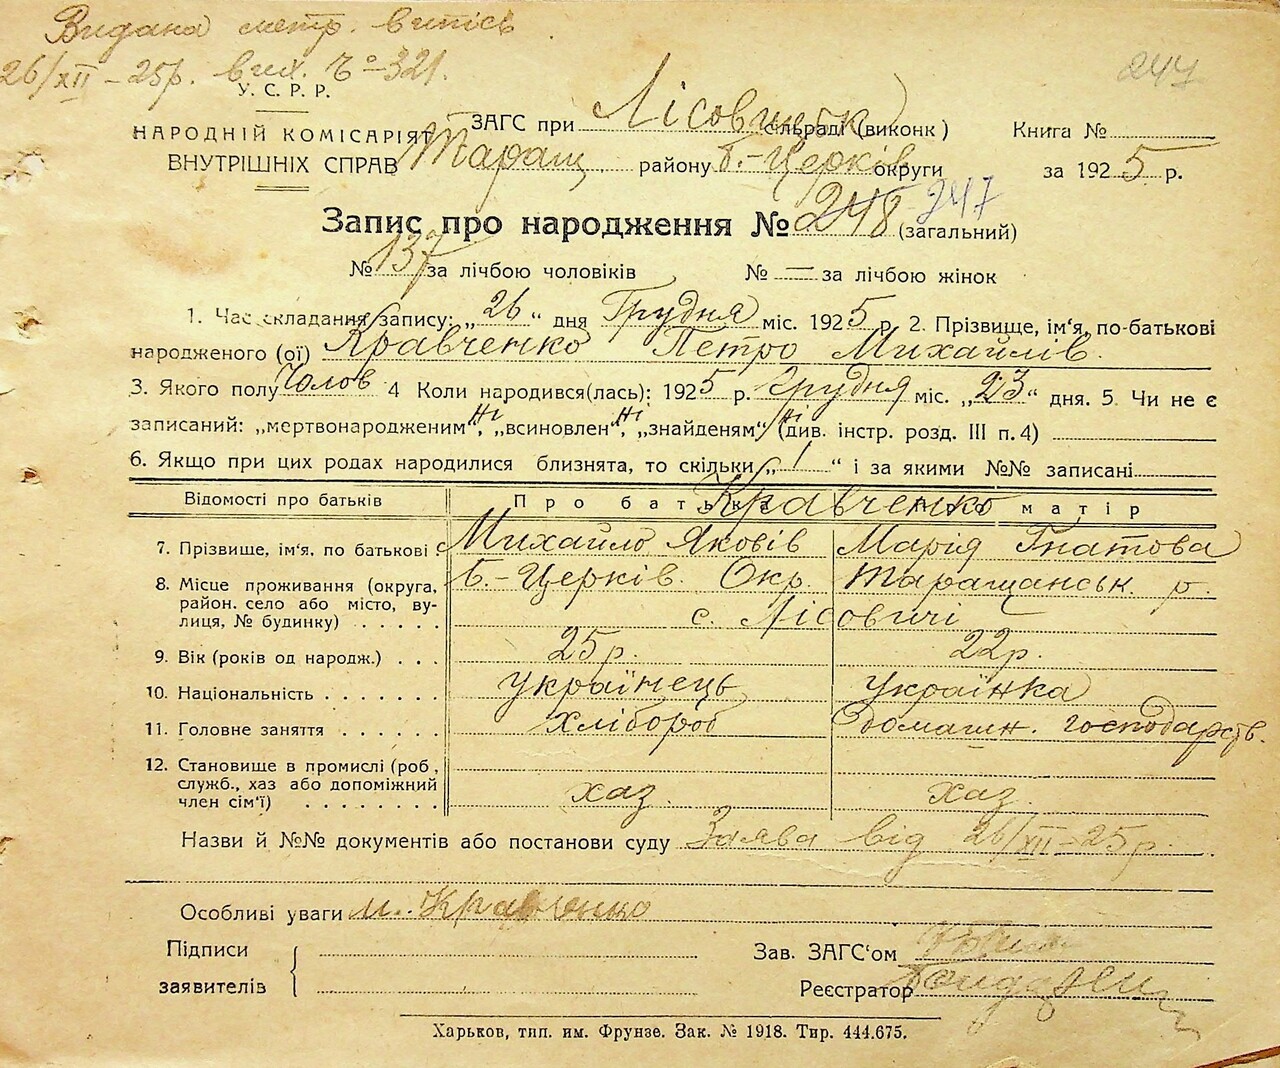 Видана метр. випись
26/XII–25р. вих. Ч°–321.
247
У. С. Р. Р.
НАРОДНІЙ КОМІСАРІЯТ
ВНУТРІШНІХ СПРАВ
ЗАГС при Лісовицьк сільраді (виконк )
Книга №
Таращ району Б.-Церків округи
за 1925 р.
Запис про народження № 248 247 (загальний)
№ 137 за лічбою чоловіків № — за лічбою жінок
1. Час складання запису: „26“ дня Грудня міс. 1925 р 2. Прізвище, ім'я, по-батькові
народженого (ої) Кравченко Петро Михайлів.
3. Якого полу Чолов 4 Коли народився(лась): 1925 р. Грудня міс. „23“ дня. 5. Чи не є
записаний: „мертвонародженим“ Ні, „всиновлен“ Ні, „знайденям“ Ні (див. інстр. розд. III п. 4)
6. Якщо при цих родах народилися близнята, то скільки „1“ і за якими №№ записані
Відомості про батьків Про батька Кравченко матір
7. Прізвище, ім'я, по батькові Михайло Яковів Марія Гнатова
8. Місце проживання (округа, Б.-Церків. Окр. Таращанськ. р.
район. село або місто, ву-
лиця, № будинку) . . . . . с. Лісовичі
9. Вік (років од народж.) . . . 25р. 22р.
10. Національність . . . . . . . українець українка
11. Головне заняття . . . . . . хлібороб домашн. господарств.
12. Становище в промислі (роб,
служб., хаз або допоміжний
член сім'ї) . . . . . . . . хаз. хаз.
Назви й №№ документів або постанови суду Заява від 26/XII–25р.
Особливі уваги М. Кравченко
Підписи
заявителів
Зав. ЗАГС'ом
Реєстратор
Харьков, тип. им. Фрунзе. Зак. № 1918. Тир. 444.675.